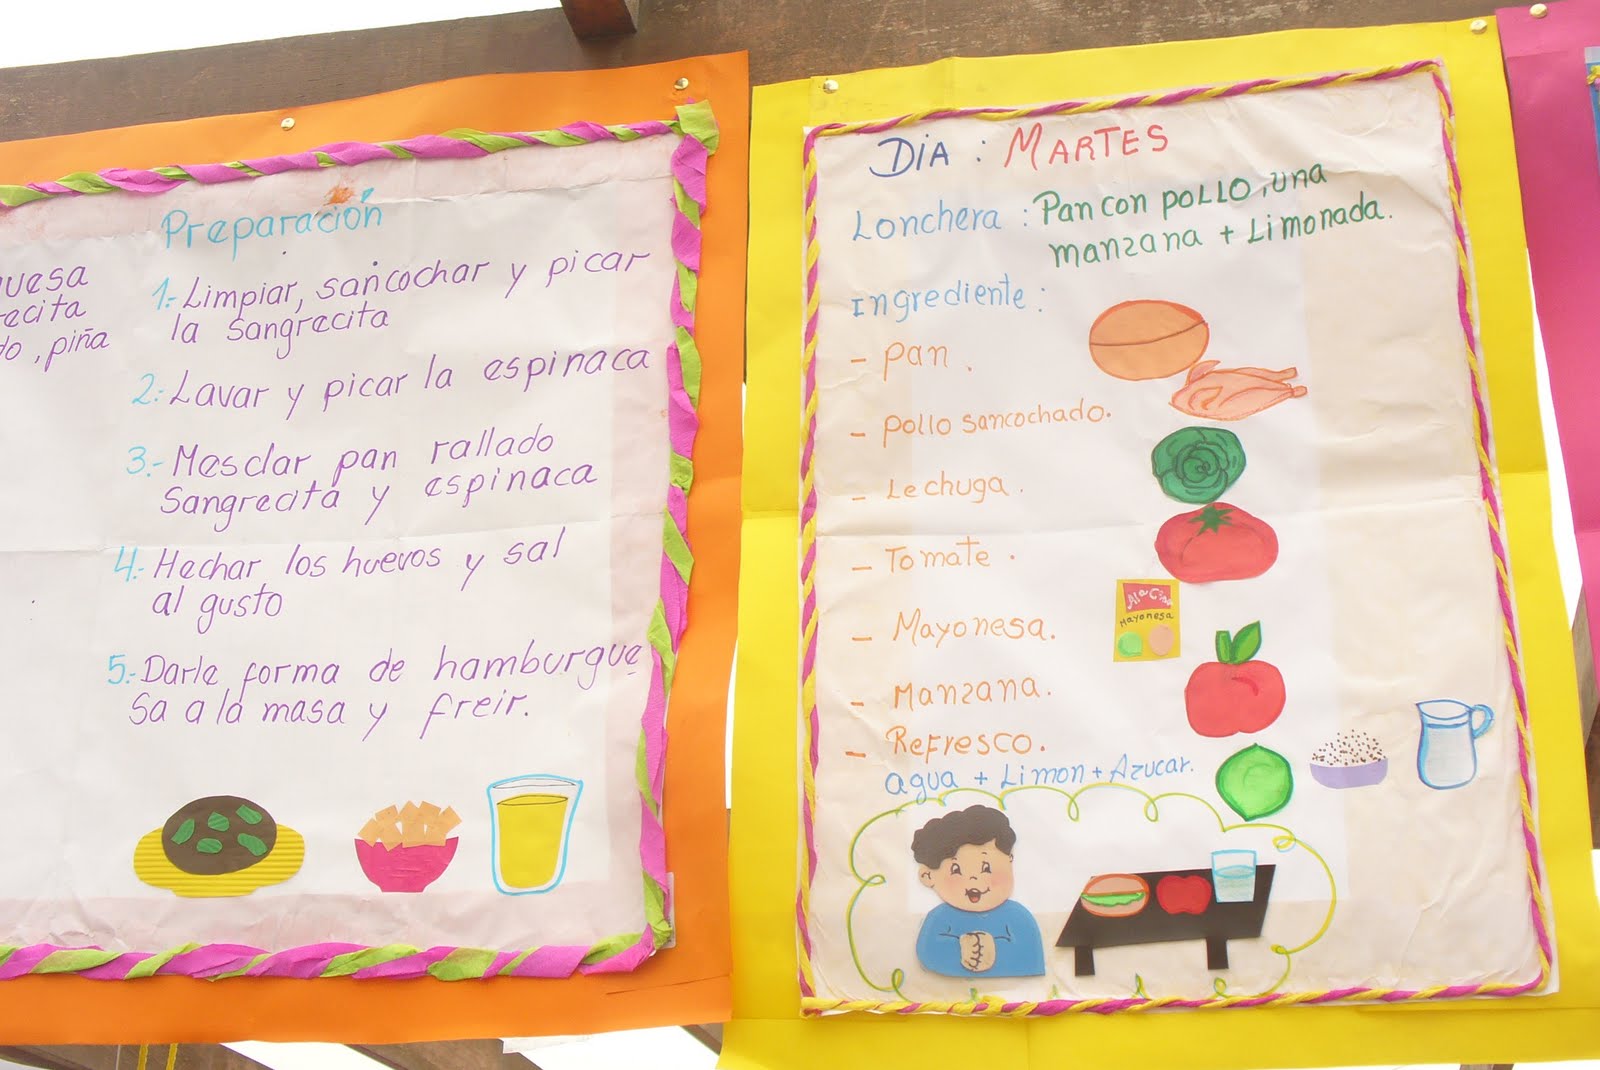 Preparación
1.- Limpiar, sancochar y picar
la sangrecita
2.- Lavar y picar la espinaca
3.- Mesclar pan rallado
sangrecita y espinaca
4.- Hechar los huevos y sal
al gusto
5.- Darle forma de hamburgue
sa a la masa y freir.
, piña
DIA : MARTES
Lonchera : Pan con pollo, una
manzana + Limonada.
Ingrediente :
- Pan .
- Pollo sancochado.
- Lechuga .
- Tomate .
- Mayonesa.
- Manzana.
- Refresco.
agua + Limon + Azucar.
Mayonesa